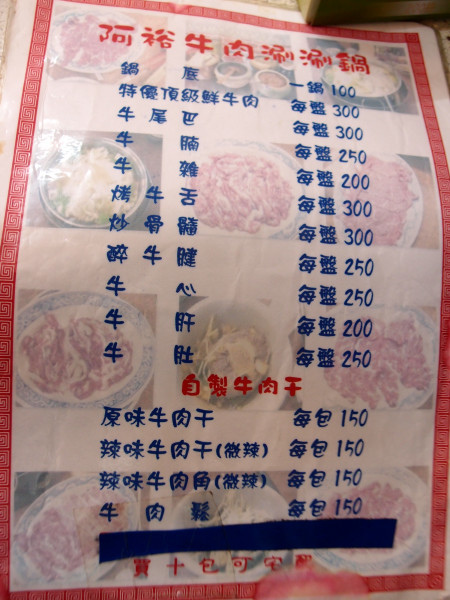 阿裕牛肉涮涮鍋
鍋底 一鍋100
特優頂級鮮牛肉 每盤300
牛尾巴 每盤300
牛腩 每盤250
牛雜 每盤200
烤牛舌 每盤300
炒骨髓 每盤300
醉牛腱 每盤250
牛心 每盤250
牛肝 每盤200
牛肚 每盤250
自製牛肉干
原味牛肉干 每包150
辣味牛肉干(微辣) 每包150
辣味牛肉角(微辣) 每包150
牛肉鬆 每包150
買十包可宅配